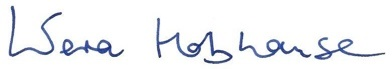 Wera Hobhouse